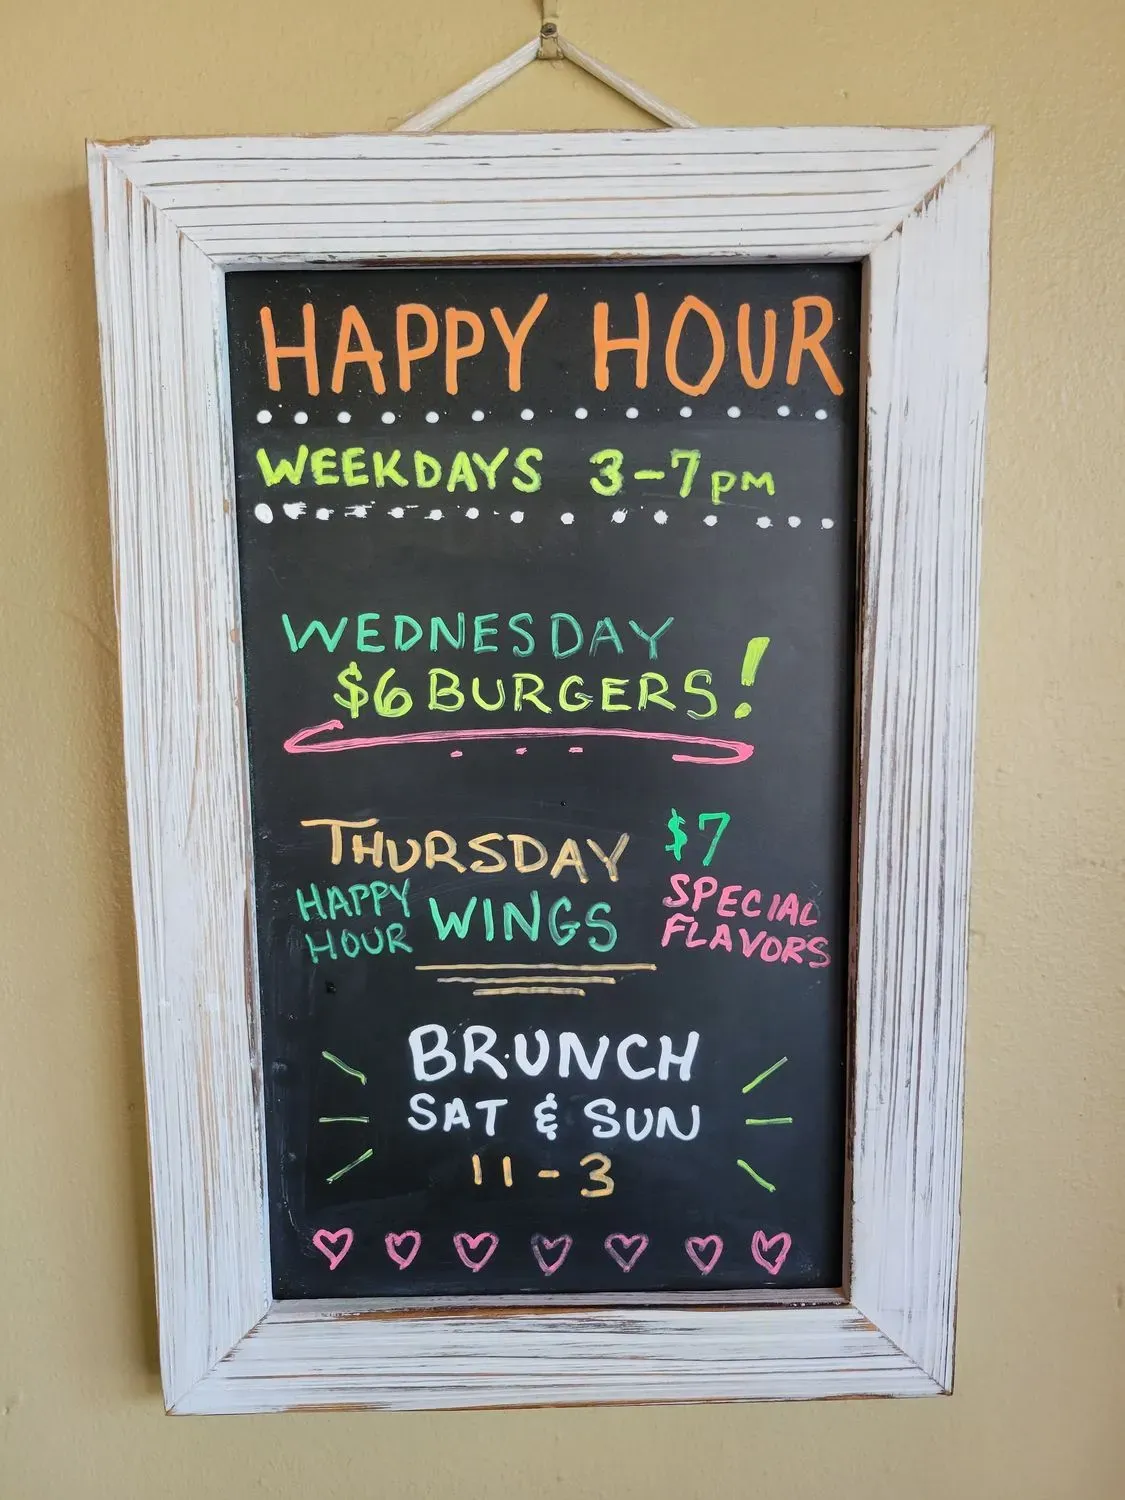 HAPPY HOUR
WEEKDAYS 3-7PM
WEDNESDAY
$6 BURGERS!
THURSDAY
HAPPY HOUR WINGS
$7
SPECIAL
FLAVORS
BRUNCH
SAT & SUN
11-3